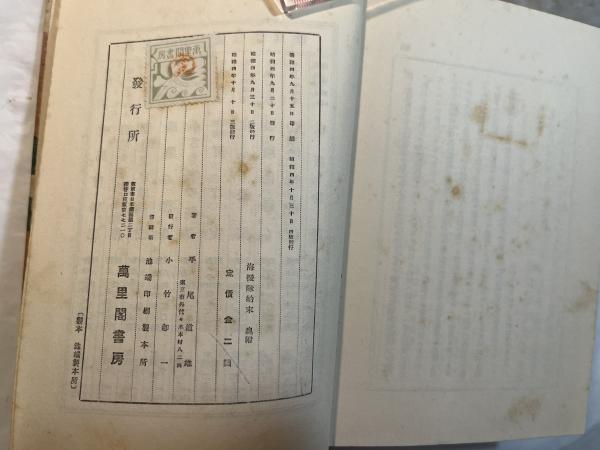 昭和四年九月十五日印刷
昭和四年九月二十日發行
昭和四年九月三十日再版發行
昭和四年十月十日三版發行
昭和四年十月三十日四版發行
海援隊始末 奥附
定價金二圓
著者 平尾道雄
發行者 小竹即一
印刷所 池端印刷製本所
發行所
萬里閣書房
萬里閣書房
〔製本 池端製本所〕